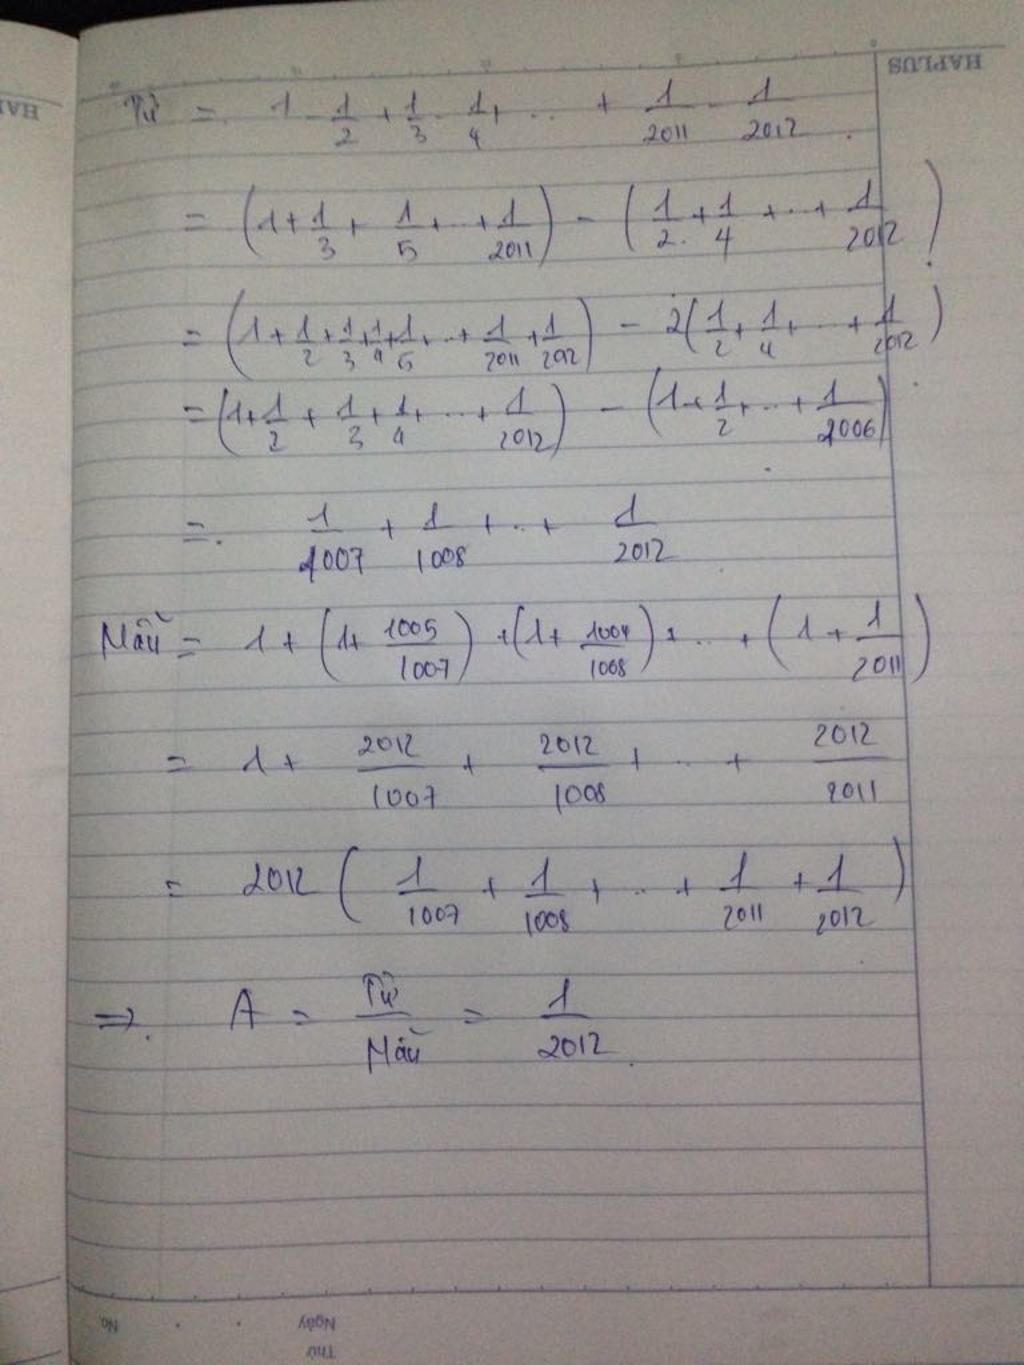 HAPLUS
Tử = 1 - 1/2 + 1/3 - 1/4 + ... + 1/2011 - 1/2012.
= (1 + 1/3 + 1/5 + ... + 1/2011) - (1/2 + 1/4 + ... + 1/2012)
= (1 + 1/2 + 1/3 + 1/4 + 1/5 + ... + 1/2011 + 1/2012) - 2(1/2 + 1/4 + ... + 1/2012)
= (1 + 1/2 + 1/3 + 1/4 + ... + 1/2012) - (1 + 1/2 + ... + 1/2006)
= 1/1007 + 1/1008 + ... + 1/2012
Mẫu = 1 + (1 + 1005/1007) + (1 + 1004/1008) + ... + (1 + 1/2011)
= 1 + 2012/1007 + 2012/1008 + ... + 2012/2011
= 2012 (1/1007 + 1/1008 + ... + 1/2011 + 1/2012)
⇒ A = Tử/Mẫu = 1/2012.
No.
Ngày
Thứ